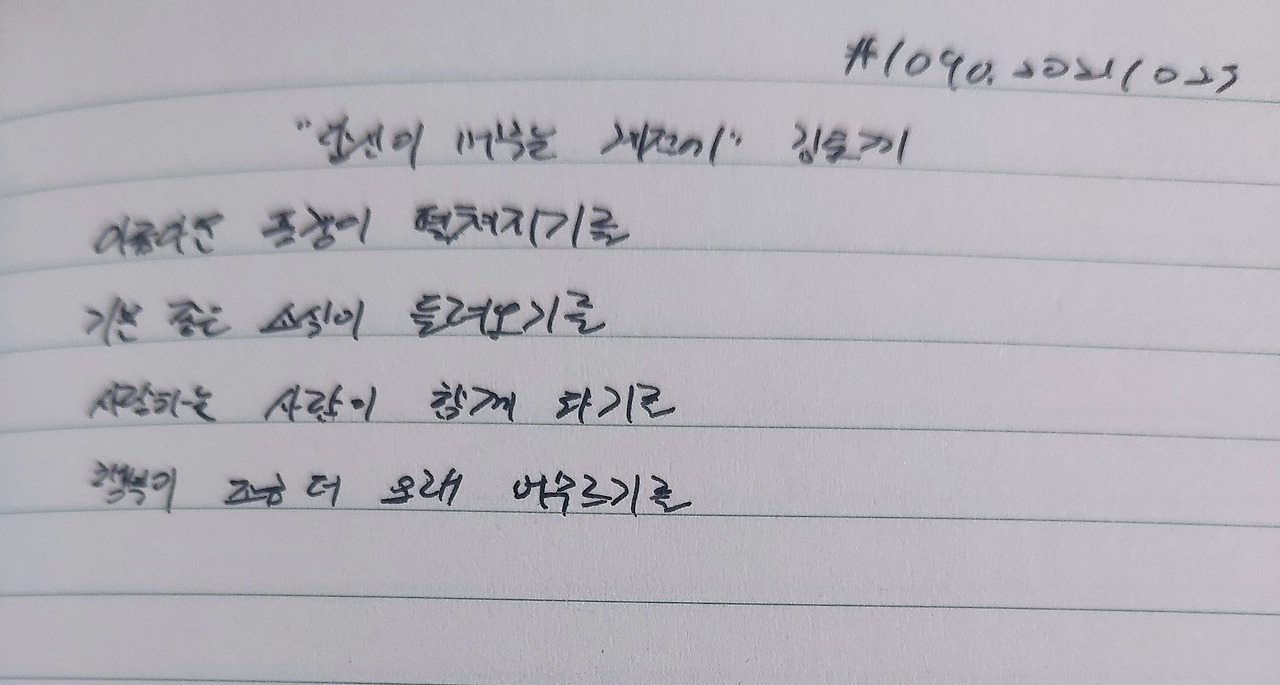 #1090. 20211023
"당신이 머무는 계절이" 김토끼
아름다운 풍경이 펼쳐지기를
기분 좋은 소식이 들려오기를
사랑하는 사람이 함께 하기를
행복이 조금 더 오래 머무르기를